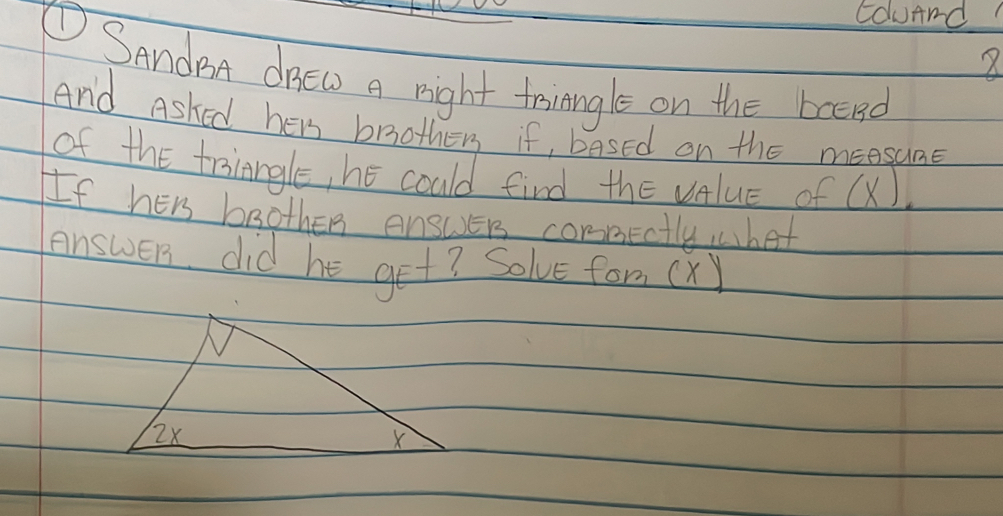 Edward
8
① Sandra drew a right triangle on the boerd
and asked her brother if, based on the measure
of the triangle, he could find the value of (x).
If her brother answer correctly, what
answer did he get? Solve for (x)
2x x